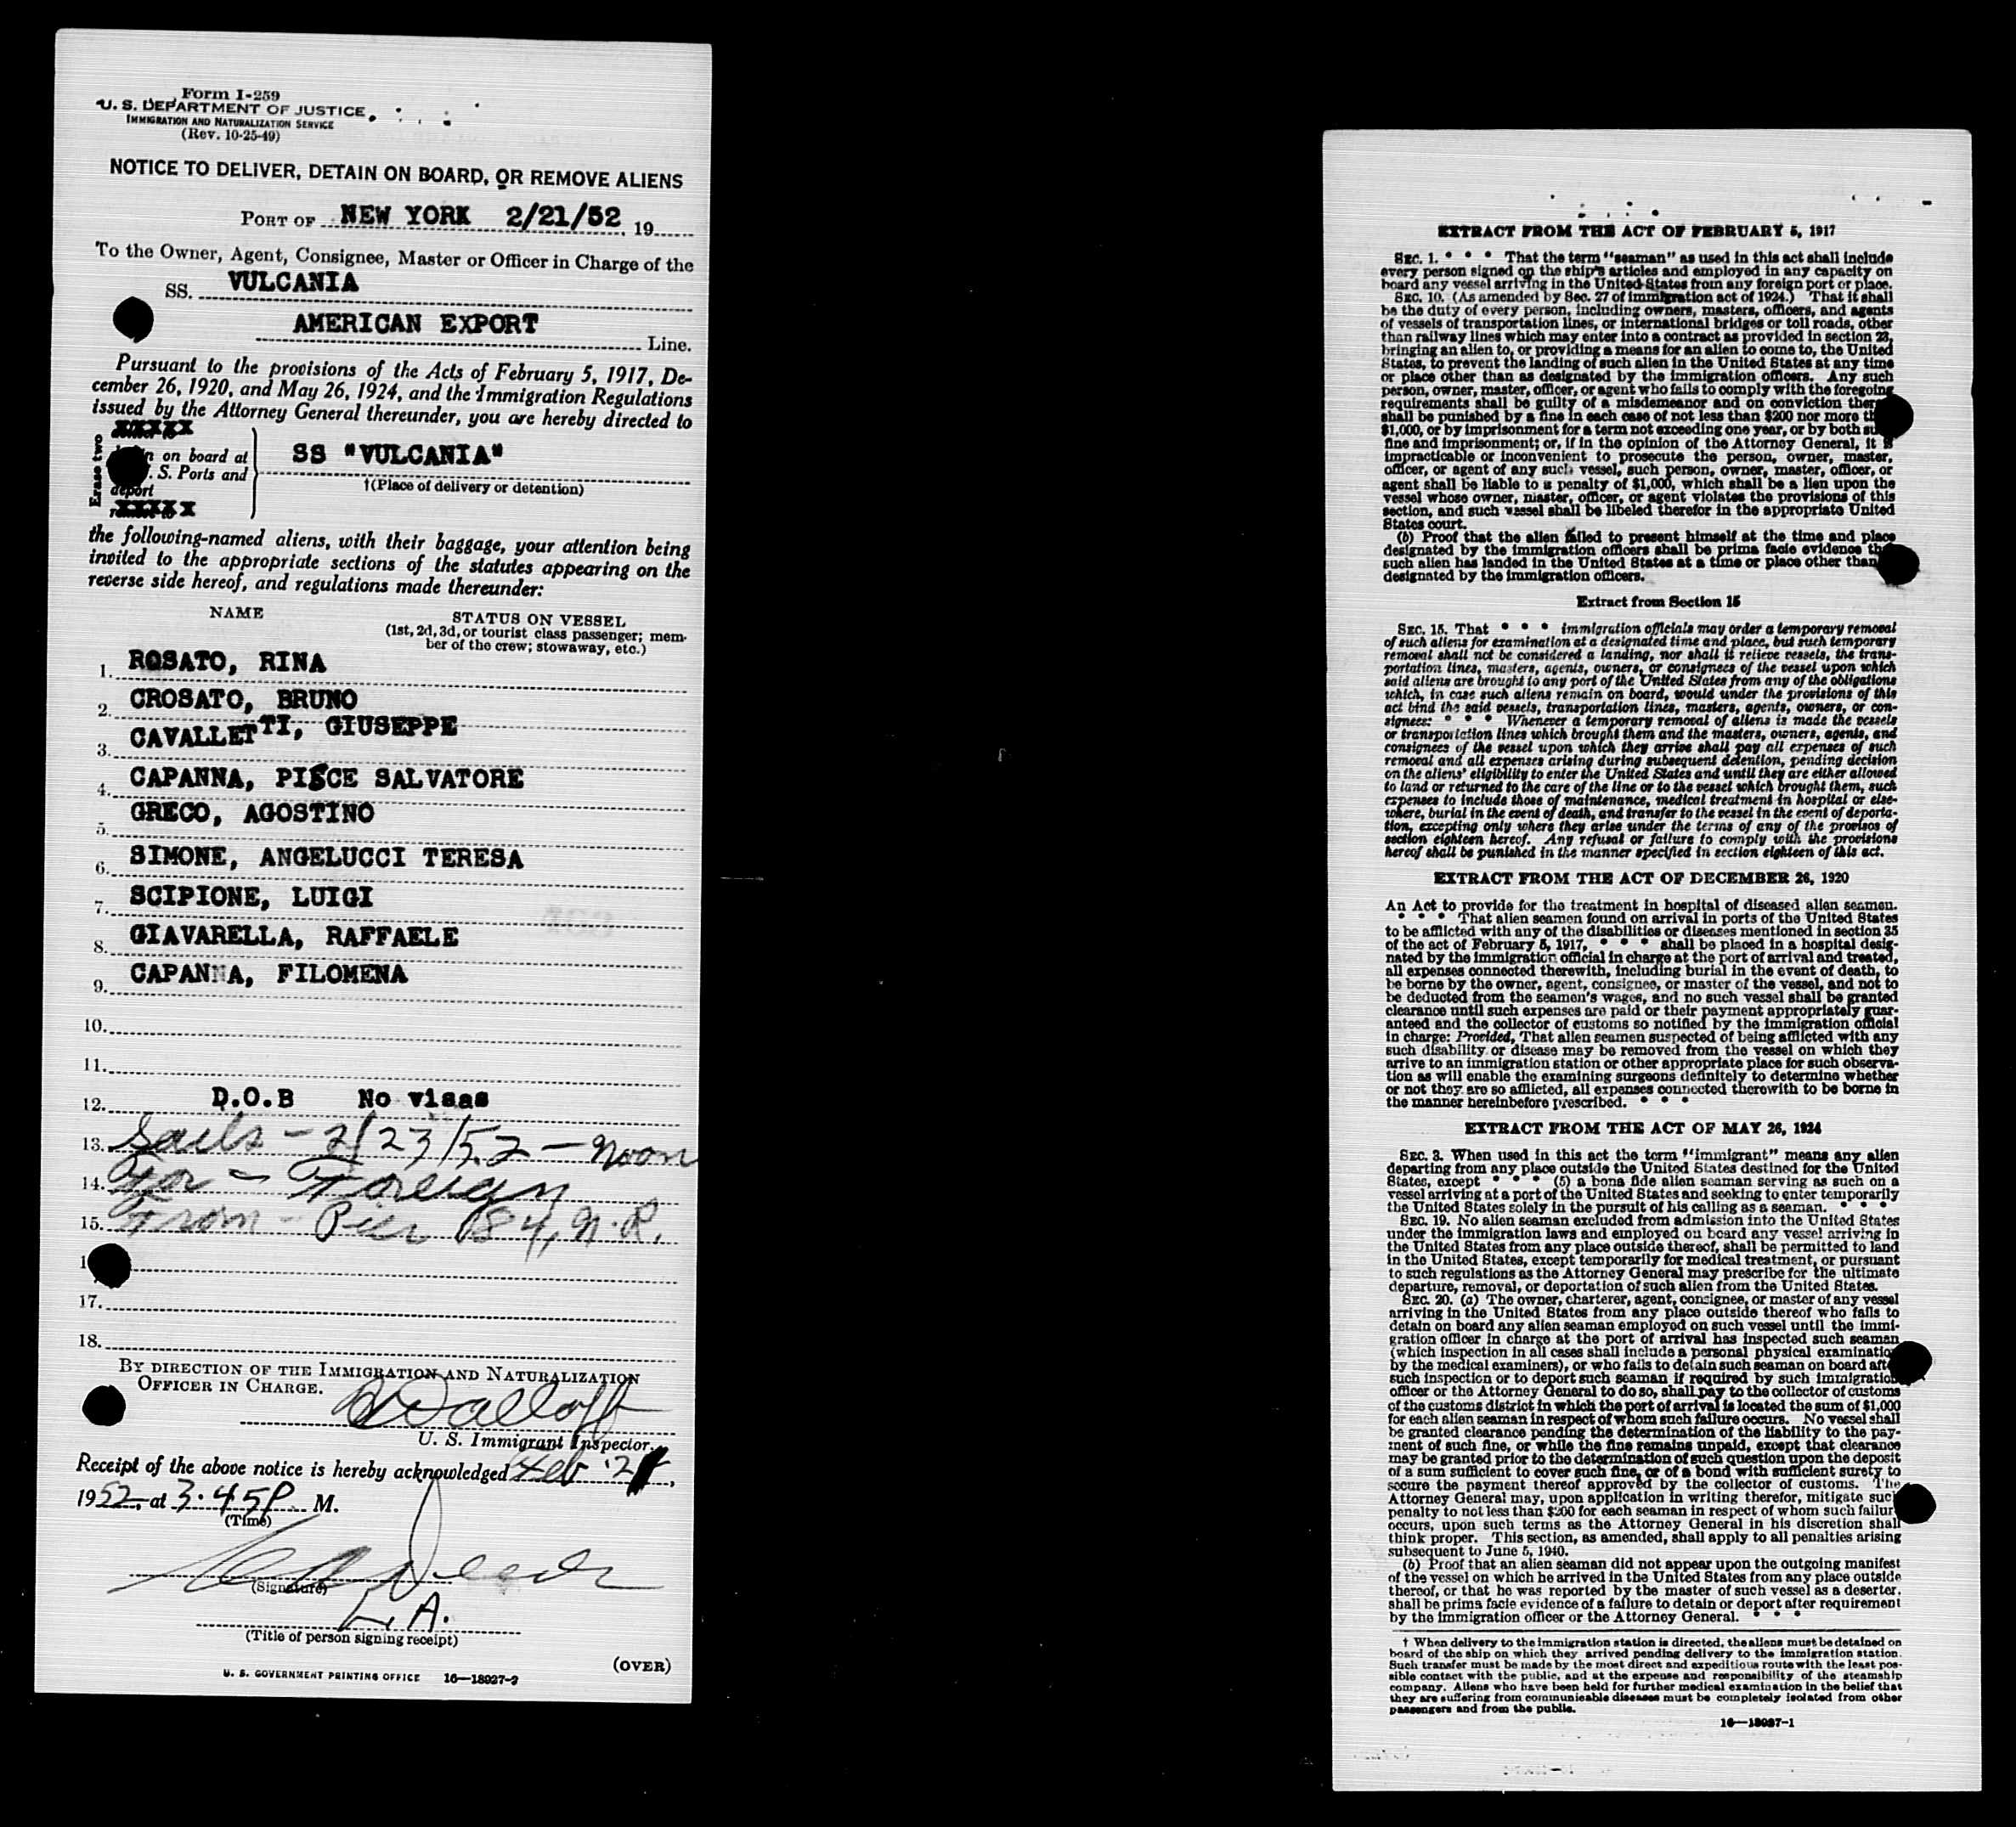 Form I-259
U. S. DEPARTMENT OF JUSTICE
IMMIGRATION AND NATURALIZATION SERVICE
(Rev. 10-25-49)
NOTICE TO DELIVER, DETAIN ON BOARD, OR REMOVE ALIENS
PORT OF NEW YORK 2/21/52, 19
To the Owner, Agent, Consignee, Master or Officer in Charge of the
SS. VULCANIA
AMERICAN EXPORT Line.
Pursuant to the provisions of the Acts of February 5, 1917, De-
cember 26, 1920, and May 26, 1924, and the Immigration Regulations
issued by the Attorney General thereunder, you are hereby directed to
Erase two
xxxxx
on board at
S. Ports and
deport
xxxxx
SS "VULCANIA"
†(Place of delivery or detention)
the following-named aliens, with their baggage, your attention being
invited to the appropriate sections of the statutes appearing on the
reverse side hereof, and regulations made thereunder:
NAME STATUS ON VESSEL
(1st, 2d, 3d, or tourist class passenger; mem-
ber of the crew; stowaway, etc.)
1. ROSATO, RINA
2. CROSATO, BRUNO
3. CAVALLETTI, GIUSEPPE
4. CAPANNA, PIECE SALVATORE
5. GRECO, AGOSTINO
6. SIMONE, ANGELUCCI TERESA
7. SCIPIONE, LUIGI
8. GIAVARELLA, RAFFAELE
9. CAPANNA, FILOMENA
10.
11.
12. D.O.B No visas
13. Sails - 2/23/52 - Noon
14. For - Foreign
15. From - Pier 84, N.R.
17.
18.
BY DIRECTION OF THE IMMIGRATION AND NATURALIZATION
OFFICER IN CHARGE.
U. S. Immigrant Inspector.
Receipt of the above notice is hereby acknowledged Feb 21,
1952, at 3.45P. M.
(Time)
(Signature)
(Title of person signing receipt)
(OVER)
U. S. GOVERNMENT PRINTING OFFICE 16—18937-2
EXTRACT FROM THE ACT OF FEBRUARY 5, 1917
SEC. 1. * * * That the term "seaman" as used in this act shall include
every person signed on the ship's articles and employed in any capacity on
board any vessel arriving in the United States from any foreign port or place.
SEC. 10. (As amended by Sec. 27 of immigration act of 1924.) That it shall
be the duty of every person, including owners, masters, officers, and agents
of vessels of transportation lines, or international bridges or toll roads, other
than railway lines which may enter into a contract as provided in section 23,
bringing an alien to, or providing a means for an alien to come to, the United
States, to prevent the landing of such alien in the United States at any time
or place other than as designated by the immigration officers. Any such
person, owner, master, officer, or agent who fails to comply with the foregoing
requirements shall be guilty of a misdemeanor and on conviction
shall be punished by a fine in each case of not less than $200 nor more
$1,000, or by imprisonment for a term not exceeding one year, or by both
fine and imprisonment; or, if in the opinion of the Attorney General, it is
impracticable or inconvenient to prosecute the person, owner, master,
officer, or agent of any such vessel, such person, owner, master, officer, or
agent shall be liable to a penalty of $1,000, which shall be a lien upon the
vessel whose owner, master, officer, or agent violates the provisions of this
section, and such vessel shall be libeled therefor in the appropriate United
States court.
(b) Proof that the alien failed to present himself at the time and place
designated by the immigration officers shall be prima facie evidence
such alien has landed in the United States at a time or place other than
designated by the immigration officers.
Extract from Section 15
SEC. 15. That * * * immigration officials may order a temporary removal
of such aliens for examination at a designated time and place, but such temporary
removal shall not be considered a landing, nor shall it relieve vessels, the trans-
portation lines, masters, agents, owners, or consignees of the vessel upon which
said aliens are brought to any port of the United States from any of the obligations
which, in case such aliens remain on board, would under the provisions of this
act bind the said vessels, transportation lines, masters, agents, owners, or con-
signees: * * * Whenever a temporary removal of aliens is made the vessels
or transportation lines which brought them and the masters, owners, agents, and
consignees of the vessel upon which they arrive shall pay all expenses of such
removal and all expenses arising during subsequent detention, pending decision
on the aliens' eligibility to enter the United States and until they are either allowed
to land or returned to the care of the line or to the vessel which brought them, such
expenses to include those of maintenance, medical treatment in hospital or else-
where, burial in the event of death, and transfer to the vessel in the event of deporta-
tion, excepting only where they arise under the terms of any of the provisos of
section eighteen hereof. Any refusal or failure to comply with the provisions
hereof shall be punished in the manner specified in section eighteen of this act.
EXTRACT FROM THE ACT OF DECEMBER 26, 1920
An Act to provide for the treatment in hospital of diseased alien seamen.
* * * That alien seamen found on arrival in ports of the United States
to be afflicted with any of the disabilities or diseases mentioned in section 35
of the act of February 5, 1917, * * * shall be placed in a hospital desig-
nated by the immigration official in charge at the port of arrival and treated,
all expenses connected therewith, including burial in the event of death, to
be borne by the owner, agent, consignee, or master of the vessel, and not to
be deducted from the seamen's wages, and no such vessel shall be granted
clearance until such expenses are paid or their payment appropriately guar-
anteed and the collector of customs so notified by the immigration official
in charge: Provided, That alien seamen suspected of being afflicted with any
such disability or disease may be removed from the vessel on which they
arrive to an immigration station or other appropriate place for such observa-
tion as will enable the examining surgeons definitely to determine whether
or not they are so afflicted, all expenses connected therewith to be borne in
the manner hereinbefore prescribed. * * *
EXTRACT FROM THE ACT OF MAY 26, 1924
SEC. 3. When used in this act the term "immigrant" means any alien
departing from any place outside the United States destined for the United
States, except * * * (5) a bona fide alien seaman serving as such on a
vessel arriving at a port of the United States and seeking to enter temporarily
the United States solely in the pursuit of his calling as a seaman. * * *
SEC. 19. No alien seaman excluded from admission into the United States
under the immigration laws and employed on board any vessel arriving in
the United States from any place outside thereof, shall be permitted to land
in the United States, except temporarily for medical treatment, or pursuant
to such regulations as the Attorney General may prescribe for the ultimate
departure, removal, or deportation of such alien from the United States.
SEC. 20. (a) The owner, charterer, agent, consignee, or master of any vessel
arriving in the United States from any place outside thereof who fails to
detain on board any alien seaman employed on such vessel until the immi-
gration officer in charge at the port of arrival has inspected such seaman
(which inspection in all cases shall include a personal physical examination
by the medical examiners), or who fails to detain such seaman on board after
such inspection or to deport such seaman if required by such immigration
officer or the Attorney General to do so, shall pay to the collector of customs
of the customs district in which the port of arrival is located the sum of $1,000
for each alien seaman in respect of whom such failure occurs. No vessel shall
be granted clearance pending the determination of the liability to the pay-
ment of such fine, or while the fine remains unpaid, except that clearance
may be granted prior to the determination of such question upon the deposit
of a sum sufficient to cover such fine, or of a bond with sufficient surety to
secure the payment thereof approved by the collector of customs. The
Attorney General may, upon application in writing therefor, mitigate such
penalty to not less than $200 for each seaman in respect of whom such failure
occurs, upon such terms as the Attorney General in his discretion shall
think proper. This section, as amended, shall apply to all penalties arising
subsequent to June 5, 1940.
(b) Proof that an alien seaman did not appear upon the outgoing manifest
of the vessel on which he arrived in the United States from any place outside
thereof, or that he was reported by the master of such vessel as a deserter,
shall be prima facie evidence of a failure to detain or deport after requirement
by the immigration officer or the Attorney General. * * *
† When delivery to the immigration station is directed, the aliens must be detained on
board of the ship on which they arrived pending delivery to the immigration station.
Such transfer must be made by the most direct and expeditious route with the least pos-
sible contact with the public, and at the expense and responsibility of the steamship
company. Aliens who have been held for further medical examination in the belief that
they are suffering from communicable diseases must be completely isolated from other
passengers and from the public.
16—18937-1